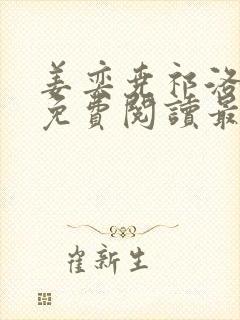 姜奕尧祁洛
免費閱讀最
崔新生